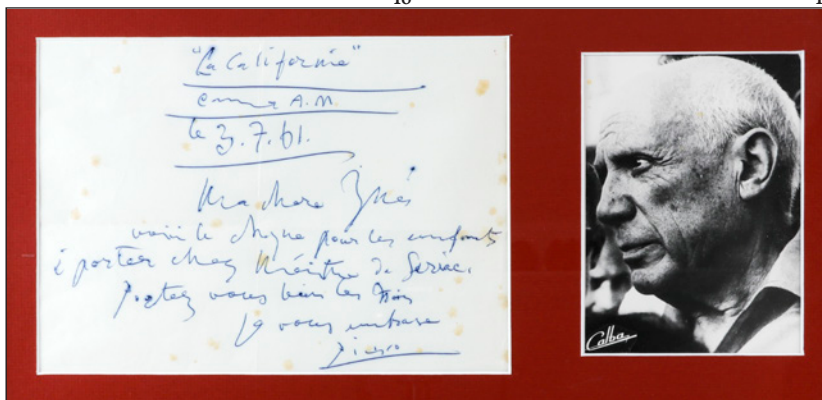 "La Californie"
Cannes A.M.
le 3.7.61.
Ma chère Inès
voici le chèque pour les enfants
à porter chez Maître de Sariac.
Portez vous bien les trois
je vous embrasse
Picasso
Calba